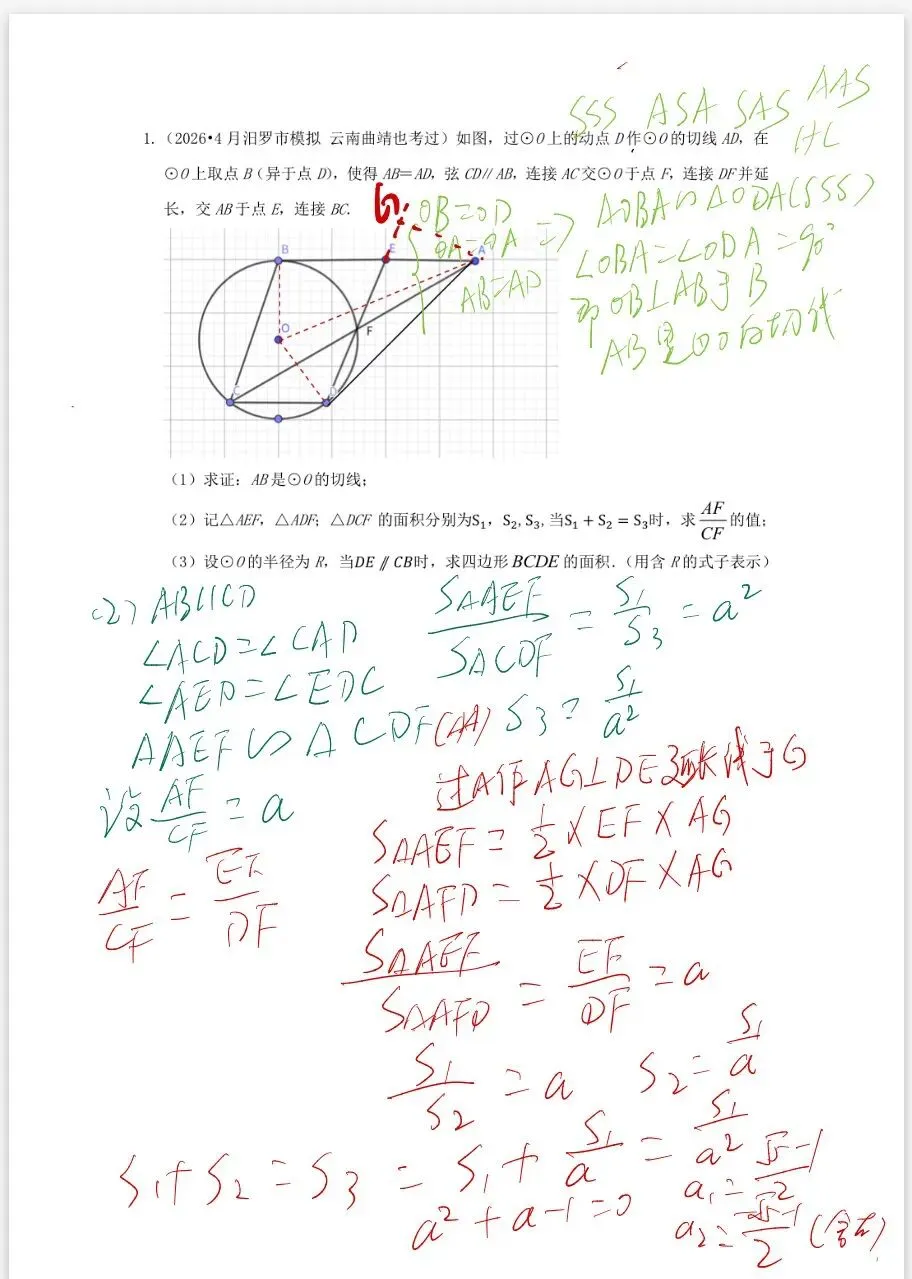 SSS ASA SAS AAS
HL
1.（2026•4 月汨罗市模拟 云南曲靖也考过）如图，过⊙O上的动点 D作⊙O的切线 AD，在
⊙O上取点 B（异于点 D），使得 AB＝AD，弦 CD∥AB，连接 AC交⊙O于点 F，连接 DF并延
长，交 AB于点 E，连接 BC.
G
OB=OD
OA=OA
AB=AD
=> △OBA≌△ODA(SSS)
∠OBA=∠ODA=90°
即OB⊥AB于B
AB是⊙O的切线
B E A
O F
C D
（1）求证：AB是⊙O的切线；
（2）记△AEF，△ADF；△DCF 的面积分别为S₁，S₂,S₃,当S₁ + S₂ = S₃时，求 AF/CF 的值；
（3）设⊙O的半径为 R，当DE ∥ CB时，求四边形 BCDE 的面积．（用含 R的式子表示）
(2) AB∥CD
∠ACD=∠CAD
∠AED=∠EDC
△AEF∽△CDF(AA)
设 AF/CF = a
AF/CF = EF/DF
S△AEF/S△CDF = S₁/S₃ = a²
S₃ = S₁/a²
过A作AG⊥DE延长线于G
S△AEF = 1/2 × EF × AG
S△AFD = 1/2 × DF × AG
S△AEF/S△AFD = EF/DF = a
S₁/S₂ = a S₂ = S₁/a
S₁+S₂ = S₃ = S₁ + S₁/a = S₁/a²
a²+a-1=0
a₁ = √5-1/2
a₂ = -√5-1/2 (舍去)